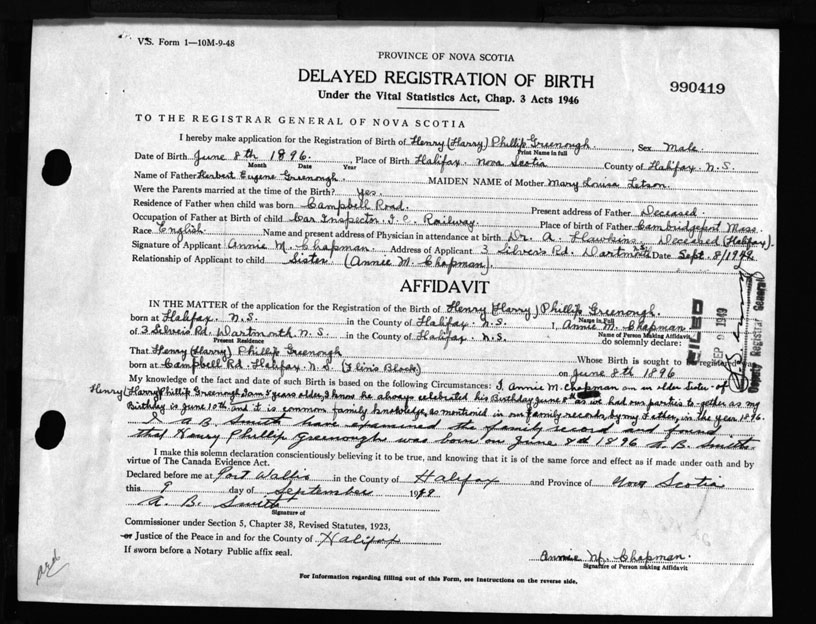 V.S. Form 1—10M-9-48
PROVINCE OF NOVA SCOTIA
DELAYED REGISTRATION OF BIRTH
990419
Under the Vital Statistics Act, Chap. 3 Acts 1946
TO THE REGISTRAR GENERAL OF NOVA SCOTIA
I hereby make application for the Registration of Birth of Henry (Harry) Phillip Greenough, Sex Male.
Print Name in full
Date of Birth June 8th 1896. Place of Birth Halifax. Nova Scotia County of Halifax N.S.
Month Date Year
Name of Father Herbert Eugene Greenough. MAIDEN NAME of Mother Mary Louisa Letson.
Were the Parents married at the time of the Birth? Yes.
Residence of Father when child was born Campbell Road. Present address of Father Deceased.
Occupation of Father at Birth of child Car Inspector I.C. Railway. Place of birth of Father Cambridgeport Mass.
Race English. Name and present address of Physician in attendance at birth Dr. A. Hawkins. Deceased (Halifax).
Signature of Applicant Annie M. Chapman. Address of Applicant 3 Silver's Rd. Dartmouth Date Sept. 8/1949
Relationship of Applicant to child Sister (Annie M. Chapman).
AFFIDAVIT
IN THE MATTER of the application for the Registration of the Birth of Henry (Harry) Phillip Greenough.
Name in Full
born at Halifax. N.S. in the County of Halifax. N.S. I, Annie M. Chapman
Name of Person Making Affidavit
of 3 Silver's Rd. Dartmouth N.S. in the County of Halifax. N.S. do solemnly declare:
Present Residence
FILED
SEP 9 1949
Deputy Registrar General
That Henry (Harry) Phillip Greenough Whose Birth is sought to be registered was
born at Campbell Rd. Halifax N.S. (Flinn's Block) on June 8th 1896
My knowledge of the fact and date of such Birth is based on the following Circumstances: I Annie M. Chapman am an older Sister of
Henry (Harry) Phillip Greenough I am 5 years older, I know he always celebrated his Birthday June 8th as we had our parties to-gether as my
Birthday is June 10th and it is common family knowledge, as mentioned in our family records by my Father, in the year 1896.
I A B Smith have examined the family record and found
that Henry Phillip Greenough was born on June 8th 1896 A. B. Smith
I make this solemn declaration conscientiously believing it to be true, and knowing that it is of the same force and effect as if made under oath and by
virtue of The Canada Evidence Act.
Declared before me at Port Wallis in the County of Halifax and Province of Nova Scotia
this 9 day of September 1949
A. B. Smith
Signature of
Commissioner under Section 5, Chapter 38, Revised Statutes, 1923,
or Justice of the Peace in and for the County of Halifax
If sworn before a Notary Public affix seal.
Annie M. Chapman.
Signature of Person Making Affidavit
For Information regarding filling out of this Form, see Instructions on the reverse side.